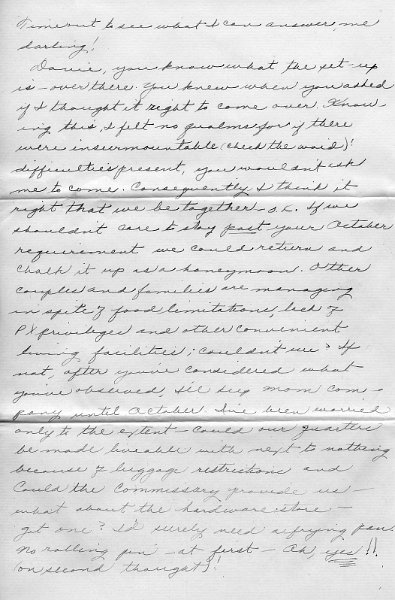 Time out to see what I can answer, me
darling!
Davie, you know what the set-up
is - over there. You knew when you asked
if I thought it right to come over. Know-
ing this, I felt no qualms for if there
were insurmountable (check the word)!
difficulties present, you wouldn't ask
me to come. Consequently, I think it
right that we be together. O.K. If we
shouldn't care to stay past your October
requirement we could return and
chalk it up as a honeymoon. Other
couples and families are managing
in spite of food limitations, lack of
PX privileges and other convenient
living facilities; couldn't we? If
not, after you've considered what
you've observed, I'll keep Mom com-
pany until October. I've been worried
only to the extent - could our quarters
be made liveable with next to nothing
because of luggage restrictions and
could the commissary provide us -
what about the hardware store -
got one? I'd surely need a frying pan.
No rolling pin - at first - Ah, yes!!
(on second thought)!